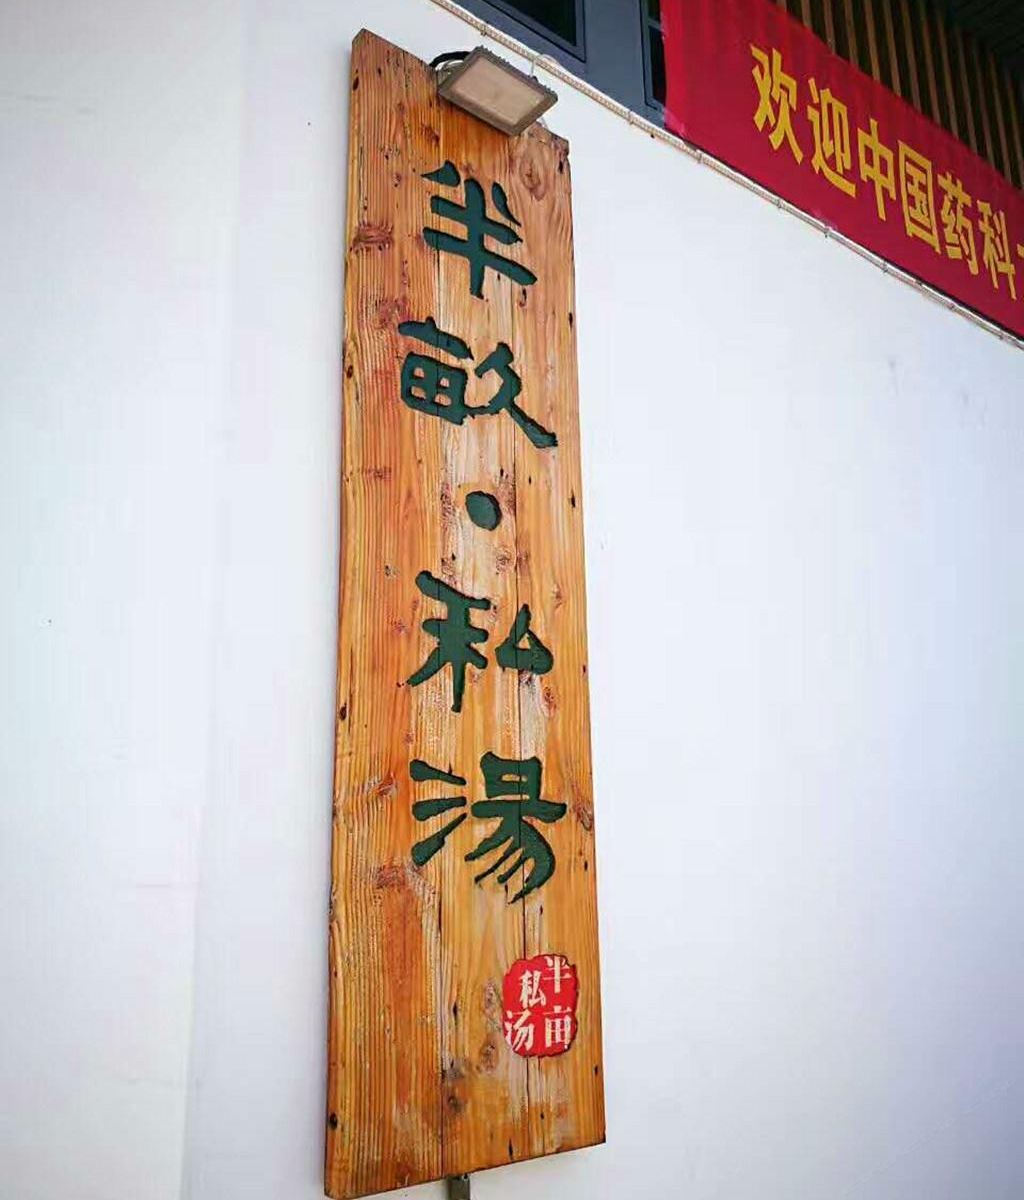 半畝·私湯
半亩
私汤
欢迎中国药科